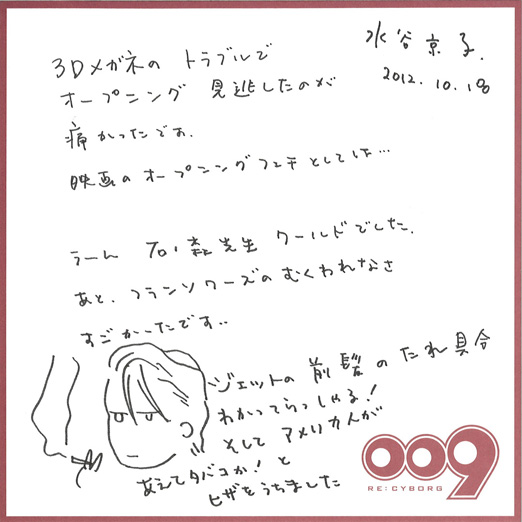 水谷京子.
2012.10.18
3Dメガネの トラブルで
オープニング 見逃したのが
痛かったです.
映画のオープニングフェチとしては…
うーん 石ノ森先生 ワールドでした.
あと、フランソワーズの むくわれなさ
すごかったです..
ジェットの前髪のたれ具合
わかってらっしゃる!
そして アメリカ人が
あえてタバコか! と
ヒザをうちました
009
RE:CYBORG